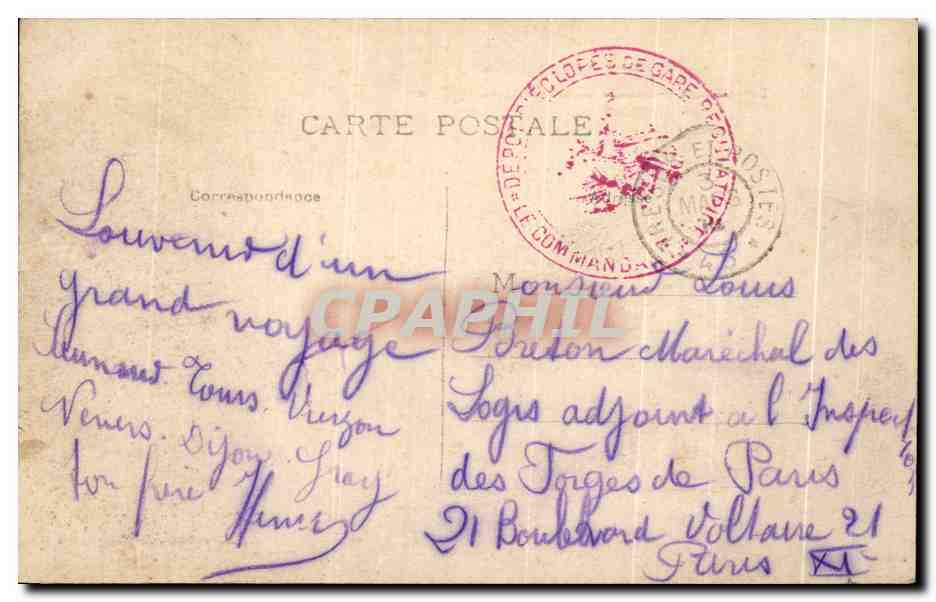 CARTE POSTALE
DEPOT D'ECLOPÉS DE GARE REGULATRICE
LE COMMANDANT
POSTES
Correspondance
Souvenir d'un
grand voyage
Tours. Vierzon
Nevers. Dijon. Gray
ton frère
Monsieur Louis
Breton Maréchal des
Logis adjoint à l'Inspect
des Forges de Paris
21 Boulevard Voltaire 21
Paris XI
CPAPHIL